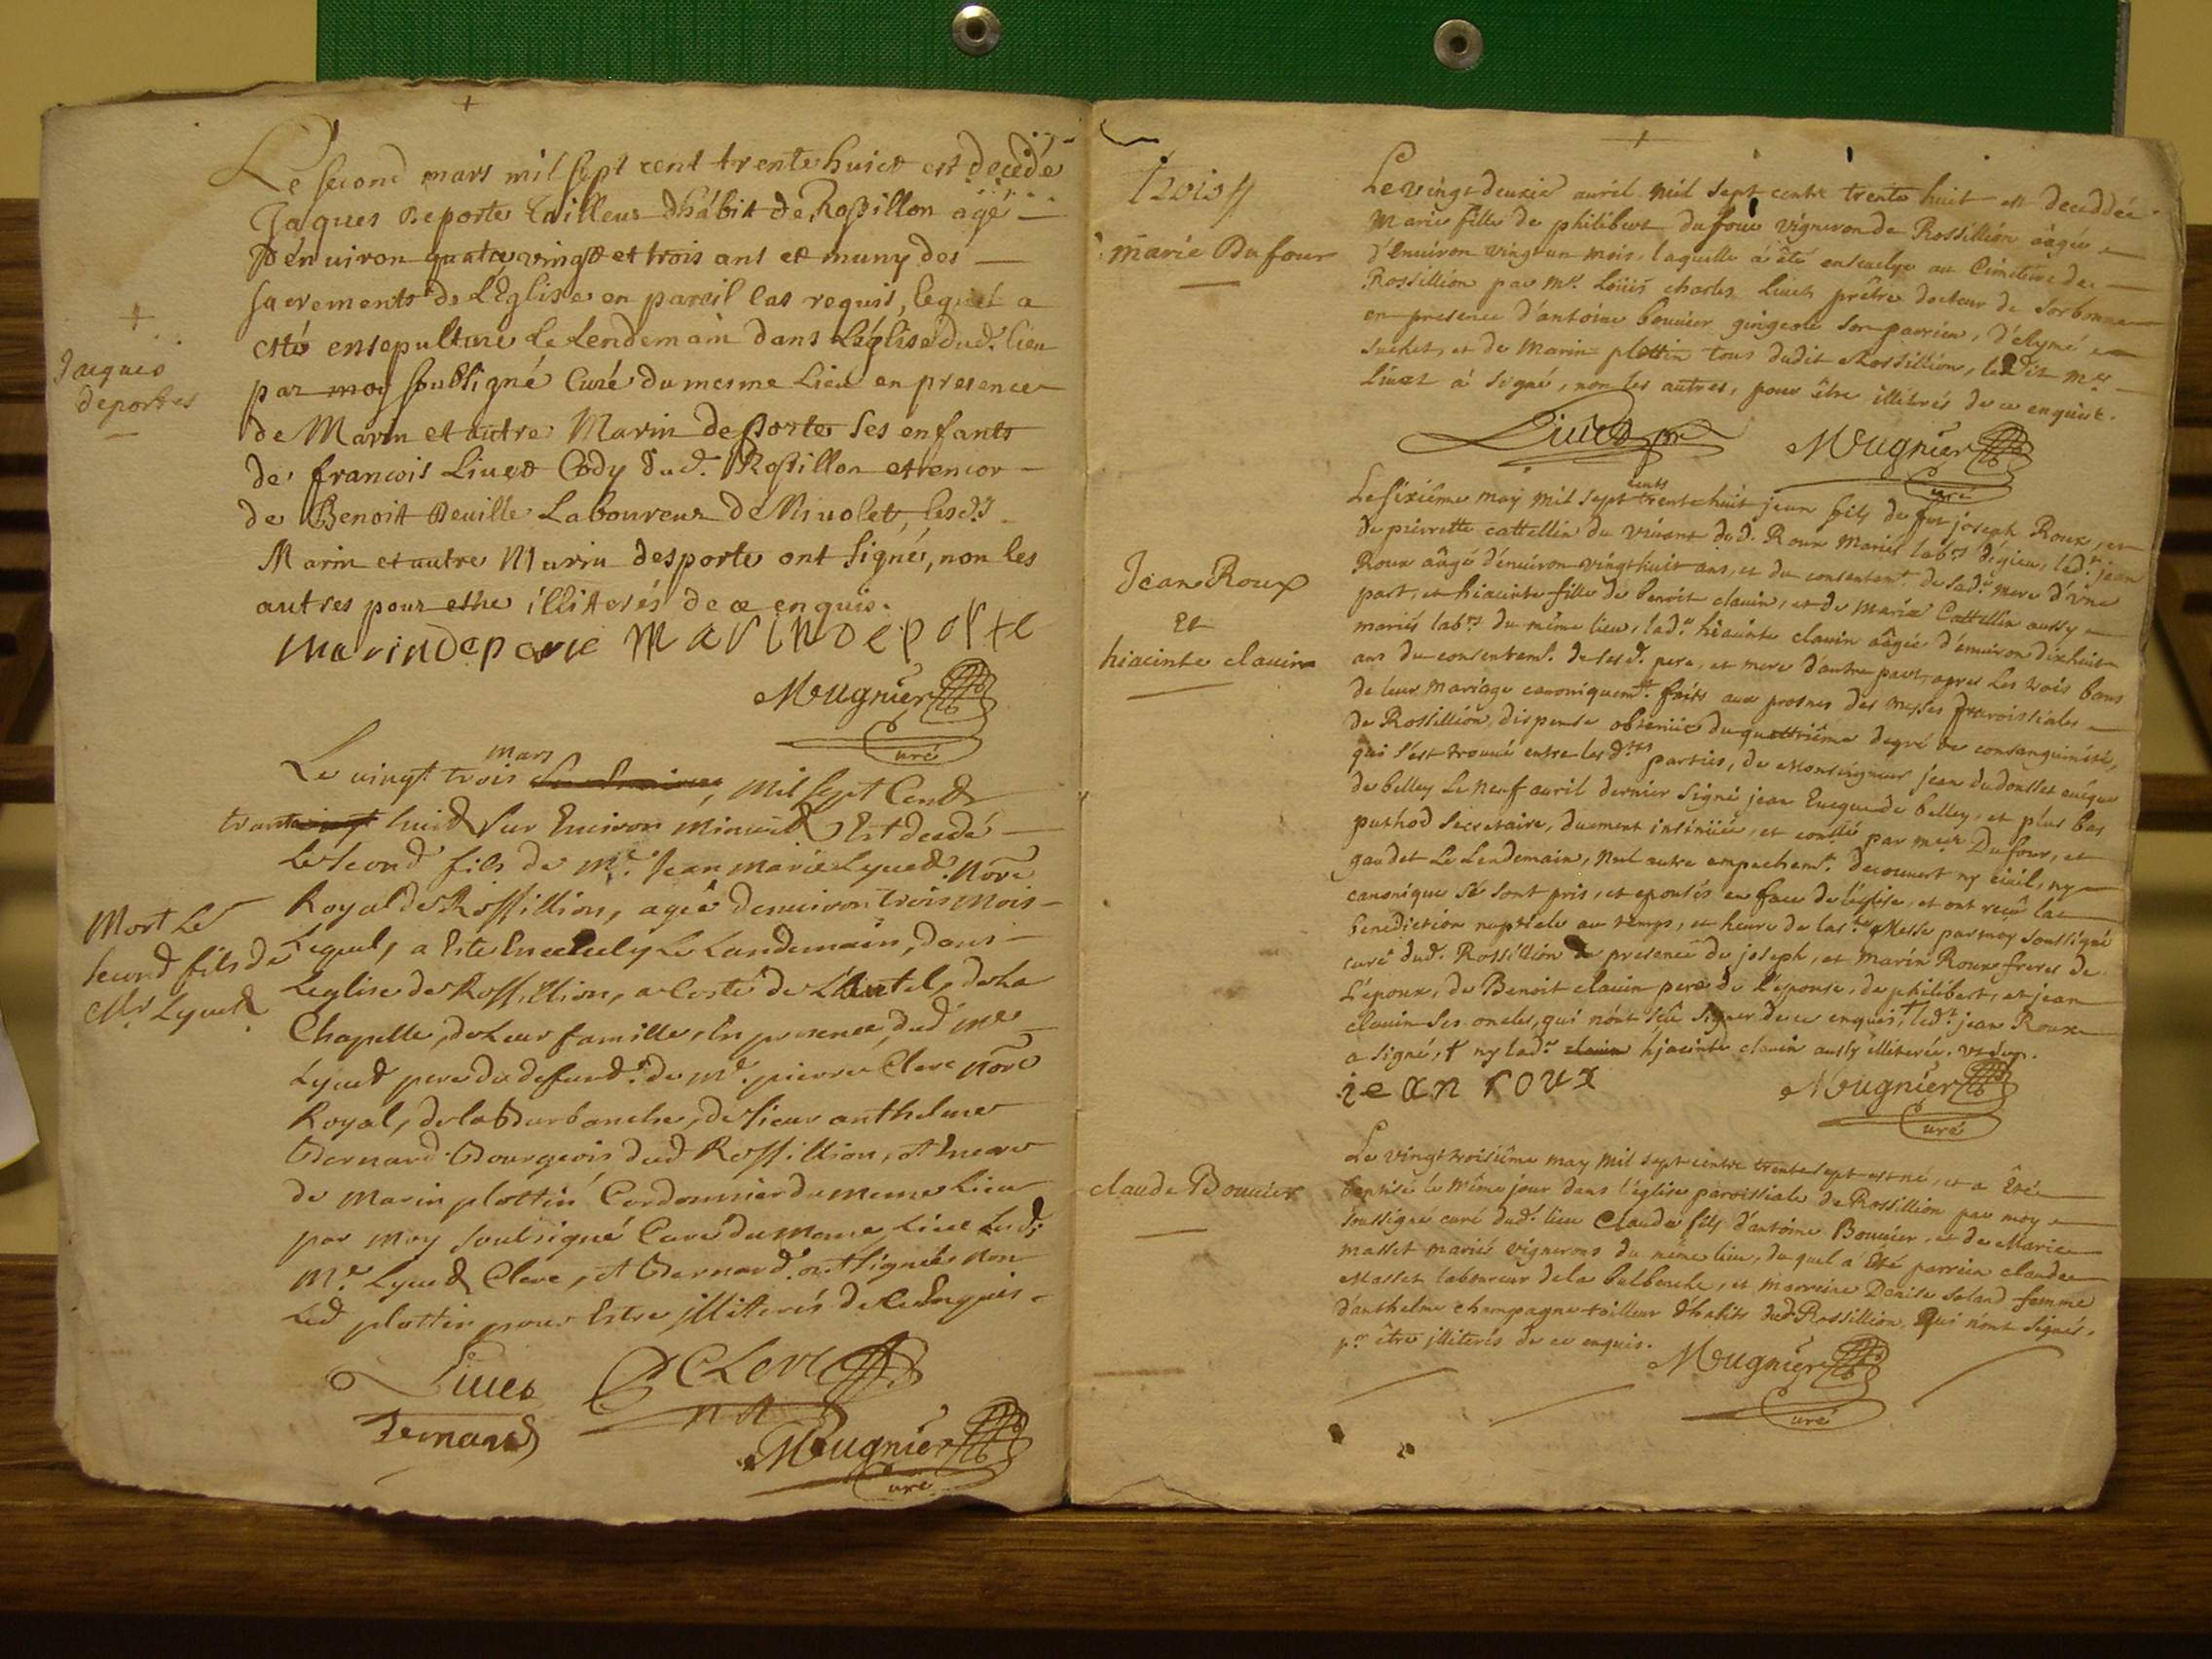 Le second mars mil sept cent trente huict est decedé
Jaques Deporte Tailleur dhàbit de Rossillon agé
d'énuiron quatre vingt et trois ans et muny des
sacrements de L'Eglise en pareil cas requis, lequel a
etté ensepulturé Le Lendemain dans L'église dud. lieu
par moy soubsigné Curé du mesme Lieu en presence
de Marin et autre Marin deporte ses enfants
de francois Liuet Cody dud. Rossillon et encor
de Benoitt Deuille Laboureur de Viruolet, lesd.
Marin et autre Marin desporte ont signé, non les
autres pour estre illitterés de ce enquis.
Jacques
deportes
marindeporte MARINDEPORTE
Mugnier
curé
Le vingt trois mars, mil sept Cent
trente huit sur Enuiron Minuit Est decedé
Le second fils de Me. Jean Marie Lyuet. Nore
Royal de Rossillion, agé denuiron trois Mois
Lequel, a Esté Enseuely Le Landemain, dans
Leglise de Rossillion, a Costé de L'Autel, de La
Chapelle, de Leur famille, En presence, dud Me
Lyuet pere du defunt. de Me. pierre Clerc Nore
Royal, de la Burbanche, de sieur anthelme
Bernard Bourgeois dud Rossillion, et Encor
de Marin plottin Cordonnier du meme Lieu
par Moy soubsigné Curé du Meme Lieu Led.
Me. Lyuet Clerc, et Bernard ont signés non
Led plottin pour Estre illiterés de Ce Enquis
Mort Le
second fils de
Mr. Lyuet
Liuet Clerc
Bernard
Mugnier
curé
Marie Dufour
Le vingt deuxie auril mil sept cents trente huit est deceddée
Marie fille de philibert dufour vigneron de Rossillion âagée
d'enuiron vingt un mois, laquelle à été enseuelye au Cimetiere de
Rossillion par Mr. Loüis charles Liuet prêtre docteur de Sorbonne
en presence d'antoine bouuier gingeole son parrein, d'elymé
suchet, et de Marin plottin tous dudit Rossillion, ledit Mr.
Liuet à signé, non les autres, pour être illitrés de ce enquist.
Liuet
Mugnier
curé
Jean Roux
Et
hiacinte clauin
Le sixiéme maÿ mil sept cents trente huit jean fils de fut joseph Roux, et
de pierrette cattellin du viuant dud. Roux Mariés labrs d'égieu, led. jean
Roux âagé d'enuiron vingt huit ans, et du consentemt. de sad. mere d'vne
part, et hiacinte fille de benoit clauin, et de Marie Cattellin aussy
mariés labrs du même lieu, lad. hiacinte clauin âagée d'énuiron dix huit
ans du consentemt. de sesd. pere, et mere d'autre part, apres Les trois bans
de leur Mariage canoniquemt. faits aux prosnes des messes parroissiales
de Rossillion, dispense obtenüe du quattriéme degré de consanguinité,
qui s'est trouué entre lesd. parties, de Monseigneur jean du doulset euêque
de belley Le neuf auril dernier signé jean Eueque de belley, et plus bas
puthod secretaire, duement insinüée, et conttée par mesr Dufour, et
gaudet Le Lendemain, nul autre empechemt. decouuert ny ciuil, ny
canonique sé sont pris, et epousés en face de l'église, et ont reçû la
benediction nuptiale au temps, et heure de la ste. Messe par moy soussigné
curé dud. Rossillion en presence de joseph, et Marin Roux freres de
L'époux, de Benoit clauin pere de L'épouse, de philibert, et jean
clauin ses oncles, qui n'ont scû signer de ce enquis, led. jean Roux
a signé, † ny lad. hjacinte clauin aussÿ illiterée. vt sup.
jean roux
Mugnier
curé
claude Bouuier
Le vingt troisiême may mil sept cents trente sept est né, et a Été
baptisé le Même jour dans l'église paroissiale de Rossillion par moy
soussigné curé dud. lieu Claude fils d'antoine Bouuier, et de Marie
masset mariés vignerons du même lieu, duquel à Été parrein claude
Masset laboureur de la bulbanche, et marreine Denise soland femme
d'anthelme champagne tailleur d'habits dud Rossillion. Qui n'ont signés,
pr. être illiterés de ce enquis.
Mugnier
curé